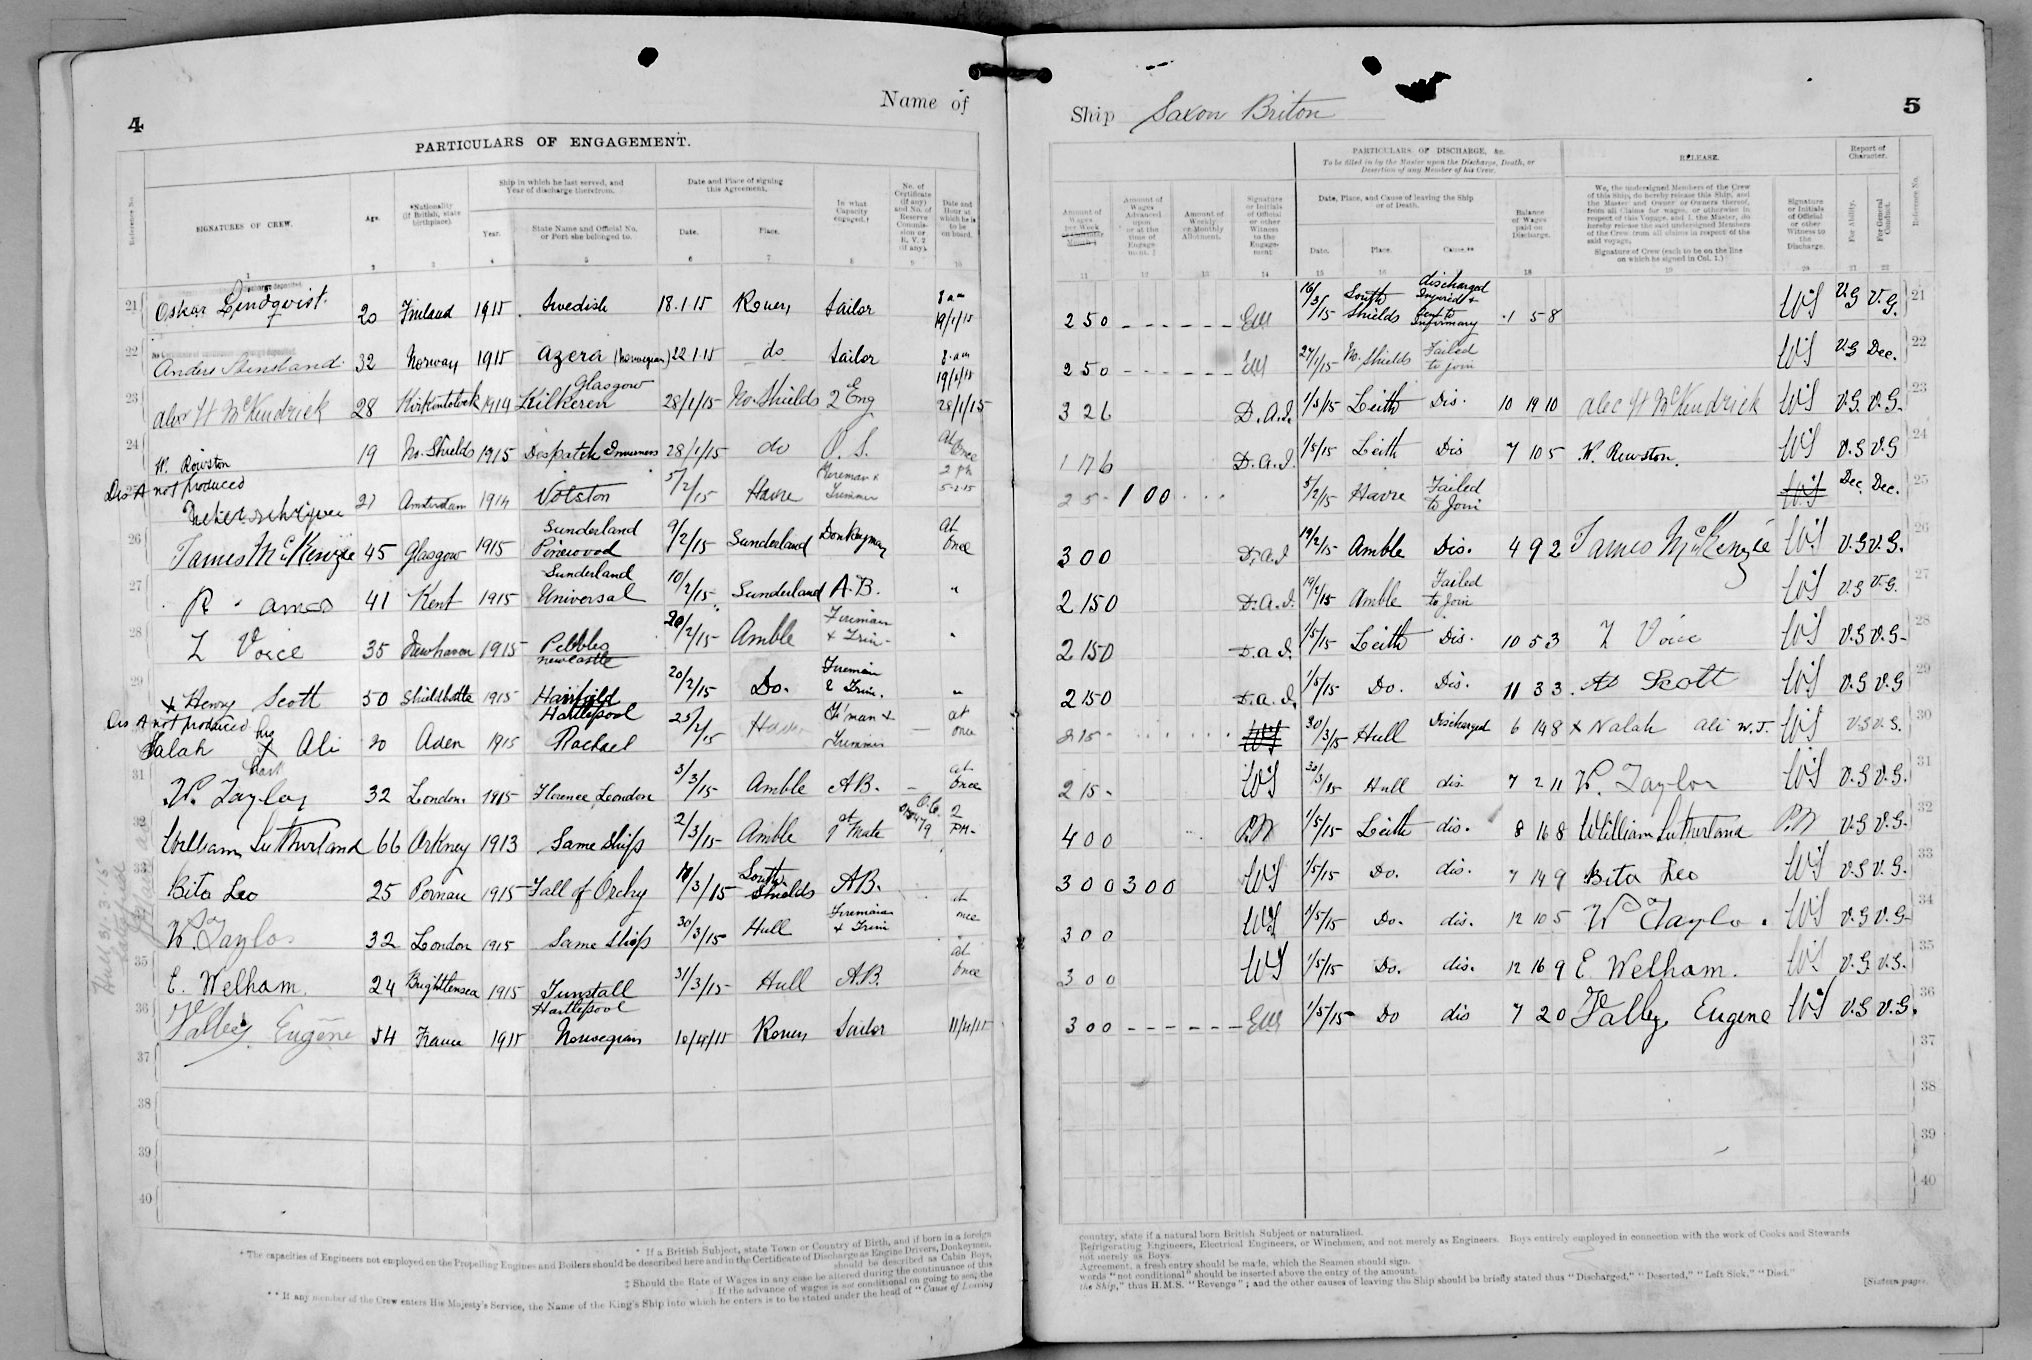 4
Name of
PARTICULARS OF ENGAGEMENT.
Reference No.
SIGNATURES OF CREW.
Age.
*Nationality (If British, state birthplace).
Ship in which he last served, and Year of discharge therefrom.
Year.
State Name and Official No. or Port she belonged to.
Date and Place of signing this Agreement.
Date.
Place.
In what Capacity engaged.†
No. of Certificate (if any) and No. of Reserve Commission or R. V. 2 (if any).
Date and Hour at which he is to be on board.
1 2 3 4 5 6 7 8 9 10
21 Oskar Lindqvist. 20 Finland 1915 Swedish 18.1.15 Rouen Sailor 8 am 19/1/15
22 Anders 32 Norway 1915 Azera (Norwegian) 22.1.15 do Sailor 8 am 19/1/15
23 Alex H McKendrick 28 Kirkintolock 1914 Kilkeren Glasgow 28/1/15 No. Shields 2 Eng 28/1/15
24 W. Rowston 19 No. Shields 1915 Despatch Inverness 28/1/15 do O. S. At Once
25 Dis A not produced 21 Amsterdam 1914 Volston 5/2/15 Havre Fireman & Trimmer 2 pm 5-2-15
26 James McKenzie 45 Glasgow 1915 Sunderland Pinewood 9/2/15 Sunderland Donkeyman At once
27 R. Ames 41 Kent 1915 Sunderland Universal 10/2/15 Sunderland A.B. "
28 Z Voice 35 Newhaven 1915 Pebbles Newcastle 20/2/15 Amble Fireman & Trim- "
29 x Henry Scott 50 Shilbottle 1915 Harfield Hartlepool 20/2/15 Do. Fireman & Trim. "
30 Dis A not produced Salah his x mark Ali 20 Aden 1915 Rachael 25/2/15 Havre F'man & Trimmer — at once
31 W. Taylor 32 London 1915 Florence London 3/3/15 Amble A.B. — at once
32 William Sutherland 66 Orkney 1913 Same Ship 2/3/15 Amble 1st Mate O.C. 2 PM-
33 Bita Leo 25 Pernau 1915 Fall of Orchy 11/3/15 South Shields A.B.
34 W. Taylor 32 London 1915 Same Ship 30/3/15 Hull Fireman & Trim at once
35 E. Welham. 24 Brightlensea 1915 Tunstall Hartlepool 31/3/15 Hull A.B. at once
36 Valley Eugène 54 France 1915 Norwegian 10/4/15 Rouen Sailor 11/4/15
37
38
39
40
Hull 31.3.15
* If a British Subject, state Town or Country of Birth, and if born in a foreign
† The capacities of Engineers not employed on the Propelling Engines and Boilers should be described here and in the Certificate of Discharge as Engine Drivers, Donkeymen,
should be described as Cabin Boys,
‡ Should the Rate of Wages in any case be altered during the continuance of this
If the advance of wages is not conditional on going to sea, the
** If any member of the Crew enters His Majesty's Service, the Name of the King's Ship into which he enters is to be stated under the head of "Cause of Leaving
Ship Saxon Briton
5
PARTICULARS OF DISCHARGE, &c.
To be filled in by the Master upon the Discharge, Death, or Desertion of any Member of his Crew.
RELEASE.
Report of Character.
Amount of Wages per Week or Calendar Month.‡
Amount of Wages Advanced upon or at the time of Engagement.‡
Amount of Weekly or Monthly Allotment.
Signature or Initials of Official or other Witness to the Engagement
Date, Place, and Cause of leaving the Ship or of Death.
Date.
Place.
Cause.**
Balance of Wages paid on Discharge.
We, the undersigned Members of the Crew of this Ship, do hereby release this Ship, and the Master and Owner or Owners thereof, from all Claims for wages, or otherwise in respect of this Voyage, and I, the Master, do hereby release the said undersigned Members of the Crew from all claims in respect of the said voyage.
Signature of Crew (each to be on the line on which he signed in Col. 1.)
Signature or Initials of Official or other Witness to the Discharge.
For Ability.
For General Conduct.
Reference No.
11 12 13 14 15 16 18 19 20 21 22
2 5 0 - - - - - - 16/3/15 South Shields discharged Injured & Sent to Infirmary 1 5 8 WS V.G V.G. 21
2 5 0 - - - - - - 27/1/15 No. Shields Failed to join WS V.G Dec. 22
3 2 6 D.A.I. 1/5/15 Leith Dis. 10 19 10 Alec H McKendrick WS V.G. V.G. 23
1 17 6 D.A.I. 1/5/15 Leith Dis 7 10 5 W. Rowston. WS V.G V.G 24
2 5 - 1 0 0 5/2/15 Havre Failed to Join WS Dec. Dec. 25
3 0 0 D.A.I 19/2/15 Amble Dis. 4 9 2 James McKenzie WS V.G V.G. 26
2 15 0 D.A.I. 19/2/15 Amble Failed to Join WS V.G V.G. 27
2 15 0 D.A.I. 1/5/15 Leith Dis. 10 5 3 Z Voice WS V.G V.G- 28
2 15 0 D.A.I. 1/5/15 Do. Dis. 11 3 3 Scott WS V.G V.G 29
2 15 - WS 30/3/15 Hull Discharged 6 14 8 x Nalah Ali W.J. WS V.G V.G. 30
2 15 - WS 30/3/15 Hull dis. 7 2 11 W. Taylor WS V.G V.G. 31
4 0 0 P.W 1/5/15 Leith dis. 8 16 8 William Sutherland P.W V.G V.G. 32
3 0 0 3 0 0 WS 1/5/15 Do. dis. 7 14 9 Bita Leo WS V.G V.G. 33
3 0 0 WS 1/5/15 Do. dis. 12 10 5 W Taylo. WS V.G V.G- 34
3 0 0 WS 1/5/15 Do. dis. 12 16 9 E Welham. WS V.G. V.G. 35
3 0 0 - - - - - - 1/5/15 Do dis 7 2 0 Valley Eugene WS V.G V.G. 36
37
38
39
40
country, state if a natural born British Subject or naturalized.
Refrigerating Engineers, Electrical Engineers, or Winchmen, and not merely as Engineers. Boys entirely employed in connection with the work of Cooks and Stewards
not merely as Boys.
Agreement, a fresh entry should be made, which the Seamen should sign.
words "not conditional" should be inserted above the entry of the amount.
the Ship," thus H.M.S. "Revenge"; and the other causes of leaving the Ship should be briefly stated thus "Discharged," "Deserted," "Left Sick," "Died."
[Sixteen pages.